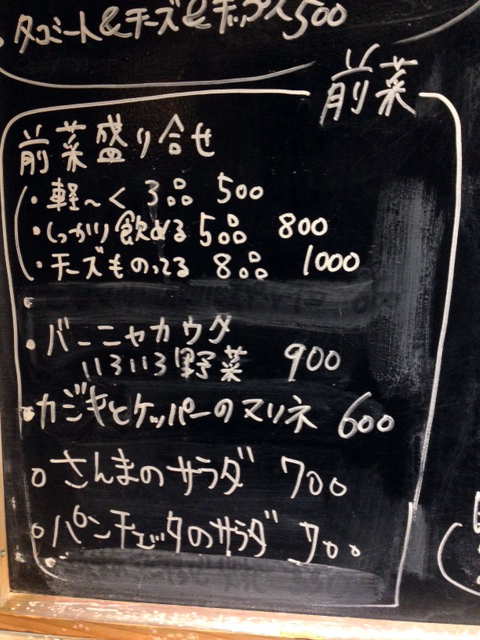 タコミート&チーズ&チップス 500
前菜
前菜盛り合せ
・軽〜く 3品 500
・しっかり飲める 5品 800
・チーズものってる 8品 1000
・バーニャカウダ
いろいろ野菜 900
カジキとケッパーのマリネ 600
○さんまのサラダ 700
○パンチェッタのサラダ 700